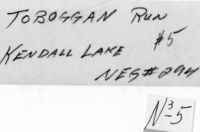 TOBOGGAN RUN
KENDALL LAKE #5
NEG# 294
N3-5